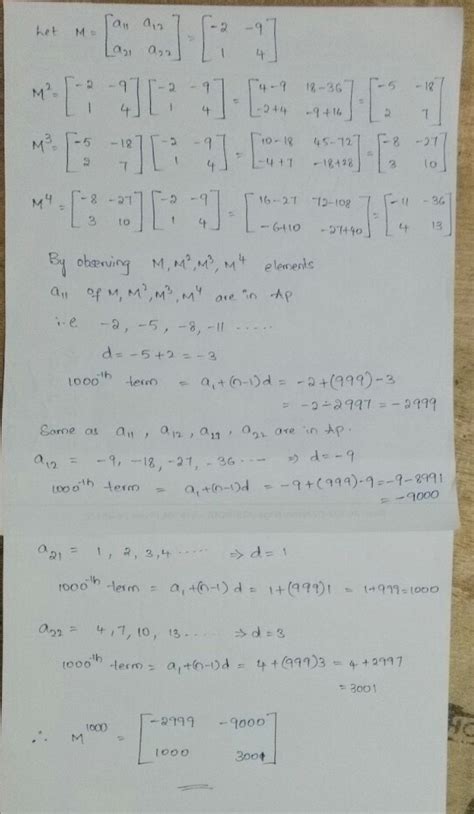 Let M = [a11 a12; a21 a22] = [-2 -9; 1 4]
M² = [-2 -9; 1 4] [-2 -9; 1 4] = [4-9 18-36; -2+4 -9+16] = [-5 -18; 2 7]
M³ = [-5 -18; 2 7] [-2 -9; 1 4] = [10-18 45-72; -4+7 -18+28] = [-8 -27; 3 10]
M⁴ = [-8 -27; 3 10] [-2 -9; 1 4] = [16-27 72-108; -6+10 -27+40] = [-11 -36; 4 13]
By observing M, M², M³, M⁴ elements
a11 of M, M², M³, M⁴ are in Ap
i.e -2, -5, -8, -11 .....
d = -5+2 = -3
1000th term = a1+(n-1)d = -2+(999)-3
= -2-2997 = -2999
Same as a11, a12, a21, a22 are in Ap.
a12 = -9, -18, -27, -36 ... ⇒ d = -9
1000th term = a1+(n-1)d = -9+(999)-9 = -9-8991
= -9000
a21 = 1, 2, 3, 4 ..... ⇒ d = 1
1000th term = a1+(n-1)d = 1+(999)1 = 1+999=1000
a22 = 4, 7, 10, 13 ..... ⇒ d = 3
1000th term = a1+(n-1)d = 4+(999)3 = 4+2997
= 3001
∴ M¹⁰⁰⁰ = [-2999 -9000; 1000 3001]